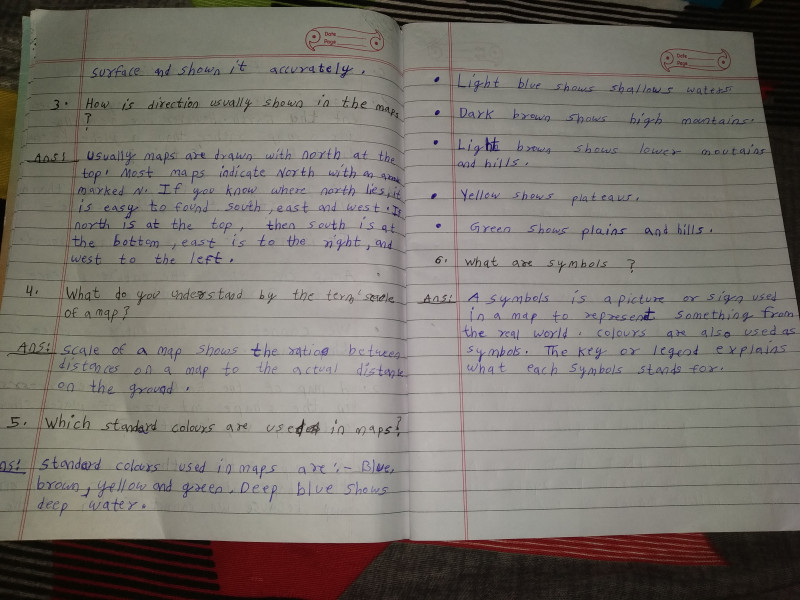 Date
Page
surface and shown it accurately.
3. How is direction usually shown in the maps
?
Ans: Usually maps are drawn with north at the
top. Most maps indicate North with an
marked N. If you know where north lies, it
is easy to found south, east and west. If
north is at the top, then south is at
the bottom, east is to the right, and
west to the left.
4. What do you understand by the term 'scale
of a map?
Ans: scale of a map shows the ratio between
distances on a map to the actual distance
on the ground.
5. Which standard colours are used in maps?
Ans: standard colours used in maps are :- Blue,
brown, yellow and green. Deep blue shows
deep water.
Date
Page
• Light blue shows shallows waters
• Dark brown shows high mountains.
• Light brown shows lower moutains
and hills.
• Yellow shows plateaus.
• Green shows plains and hills.
6. What are symbols ?
Ans: A symbols is a picture or sign used
in a map to represent something from
the real world. colours are also used as
symbols. The key or legend explains
what each symbols stands for.